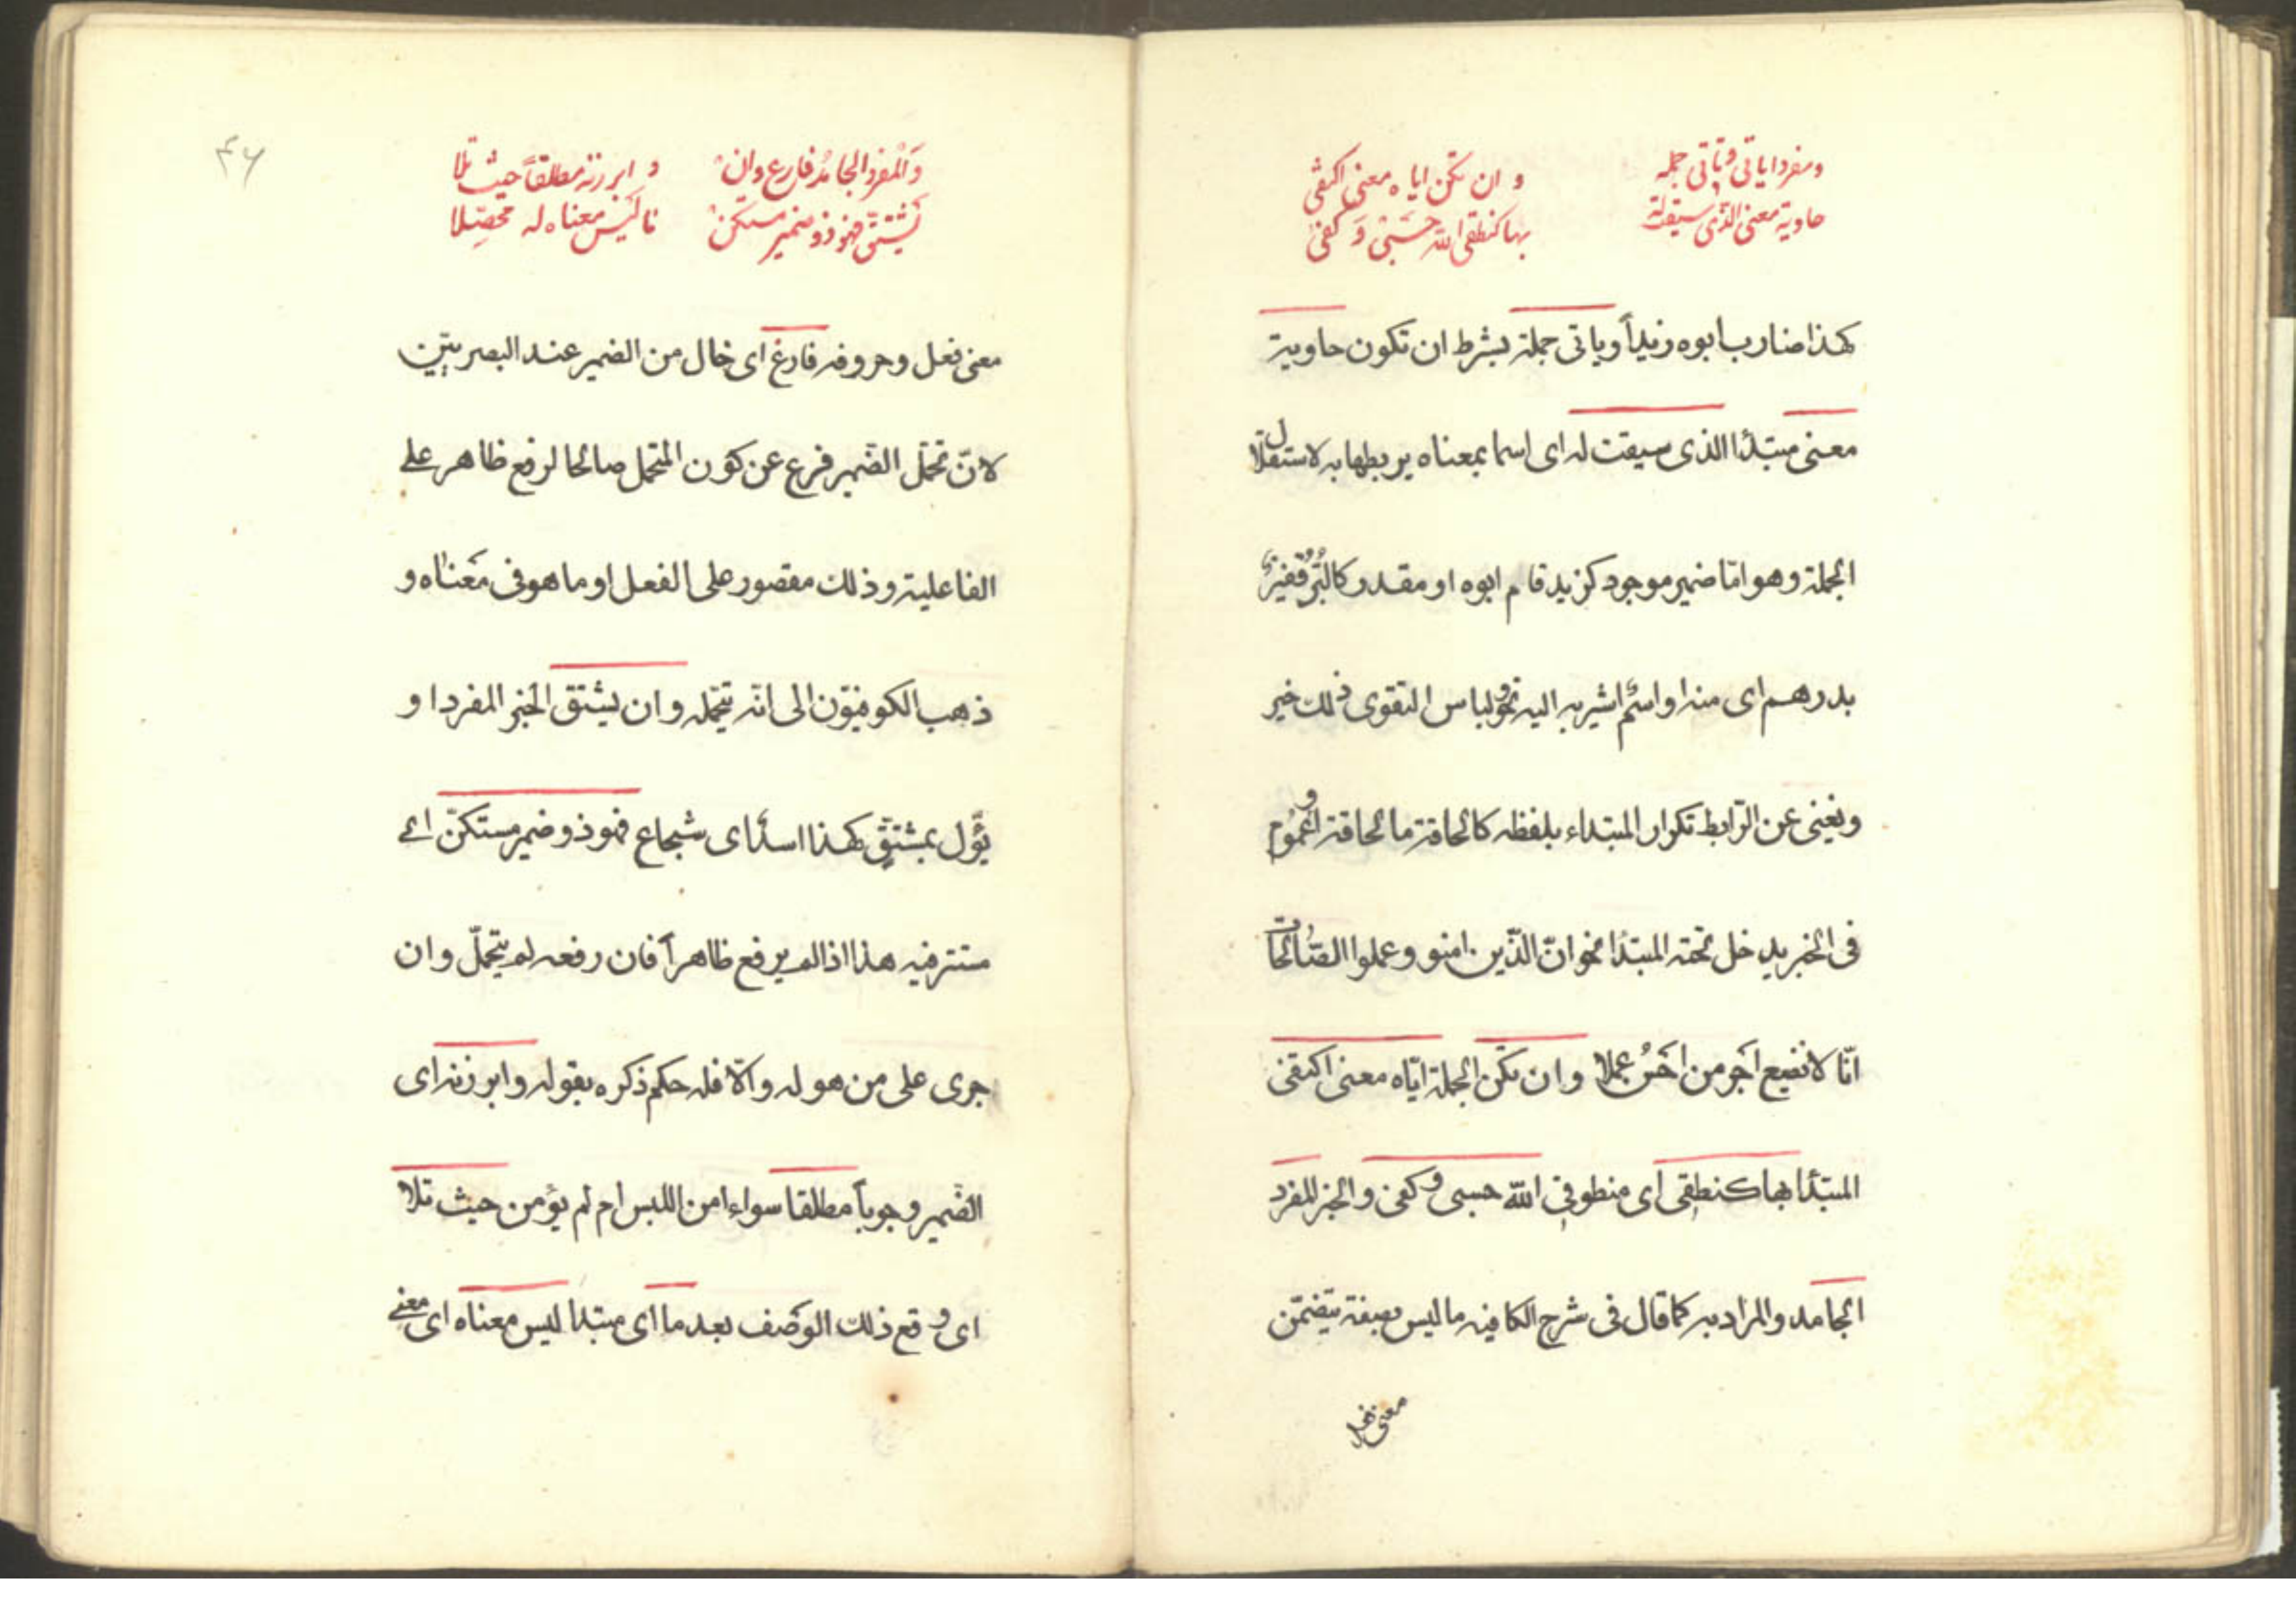 ومفردا ياتى وياتى جمله
حاوية معنى الذى سيقت له
وان تكن اياه معنى اكتفى
بها كنطقى الله حسبى وكفى
كهذا ضارب ابوه زيداً وياتى جملة بشرط ان تكون حاوية
معنى مبتدأ الذى سيقت له اى اسما بمعناه يربطها به لاستقلال
الجملة وهو امّا ضمير موجود كزيد قام ابوه او مقدر كالبُرّ قفيزٌ
بدرهم اى منه او اسم اشير به اليه نحو ولباس التقوى ذلك خير
ويغنى عن الرّابط تكرار المبتداء بلفظه كالحاقة ما الحاقة او عموم
فى الخبر يدخل تحته المبتدأ نحو انّ الذّين امنو وعملوا الصّالحات
انّا لا نضيع اَجر من اَحسَنُ عملا وان تكن الجملة ايّاه معنى اكتفى
المبتدأ بها كنطقى اى منطوقى اللّه حسبى وكفى والخبر المفرد
الجامد والمراد به كما قال فى شرح الكافيه ما ليس بصفة يتضمّن
معنى فعل
۴۶
وَالمُفرد الجامدُ فارغ وان
يُشتقّ فهو ذو ضمير مستكن
وابرزنه مطلقاً حيث تلا
ما لَيس معناه له محصّلا
معنى فعل وحروفه فارغ اى خال من الضمير عند البصريّين
لانّ تحمّل الضّمير فرع عن كون المتحمل صالحا لرفع ظاهر على
الفاعلية وذلك مقصور على الفعل او ما هو فى معناه و
ذهب الكوفيّون الى انّه يتحمّله وان يشتق الخبر المفرد او
يؤّل بمشتقٍّ كهذا اسد اى شجاع فهو ذو ضمير مستكنّ اى
مستتر فيه هذا اذا لم يرفع ظاهراً فان رفعه لم يتحمّل وان
جرى على من هو له والّا فله حكم ذكره بقوله وابرزنه اى
الضّمير وجوباً مطلقا سواء امن اللبس ام لم يؤمن حيث تلا
اى وقع ذلك الوصف بعد ما اى مبتدا ليس معناه اى معنى